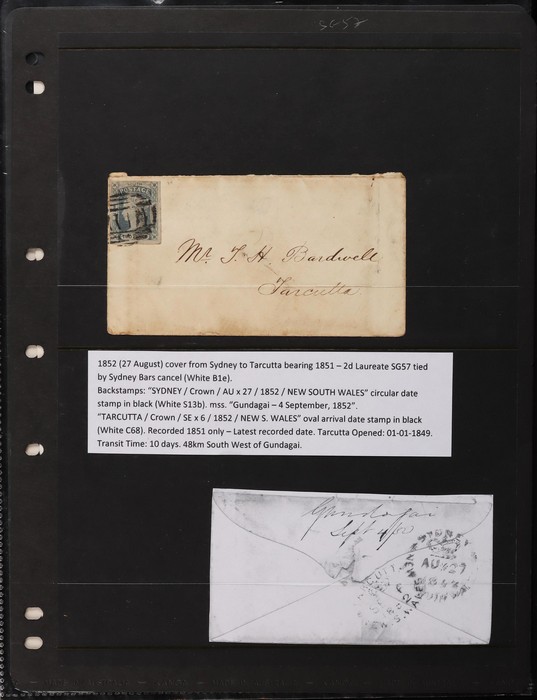 SG57
POSTAGE
Mr. T. H. Bardwell
Tarcutta.
1852 (27 August) cover from Sydney to Tarcutta bearing 1851 – 2d Laureate SG57 tied
by Sydney Bars cancel (White B1e).
Backstamps: "SYDNEY / Crown / AU x 27 / 1852 / NEW SOUTH WALES" circular date
stamp in black (White S13b). mss. "Gundagai – 4 September, 1852".
"TARCUTTA / Crown / SE x 6 / 1852 / NEW S. WALES" oval arrival date stamp in black
(White C68). Recorded 1851 only – Latest recorded date. Tarcutta Opened: 01-01-1849.
Transit Time: 10 days. 48km South West of Gundagai.
Gundagai
Sept 4/52
SYDNEY
AU 27